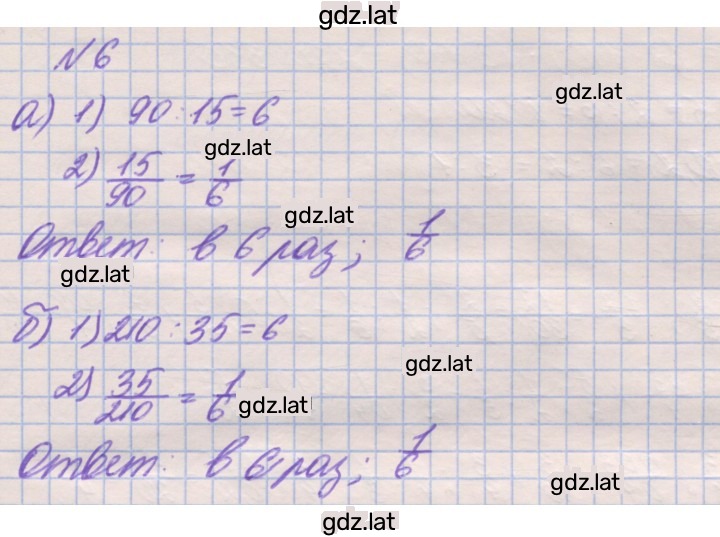 gdz.lat
№ 6
gdz.lat
а) 1) 90 : 15 = 6
gdz.lat
2) 15/90 = 1/6
gdz.lat
Ответ: в 6 раз; 1/6
gdz.lat
б) 1) 210 : 35 = 6
gdz.lat
2) 35/210 = 1/6
gdz.lat
Ответ: в 6 раз; 1/6
gdz.lat
gdz.lat